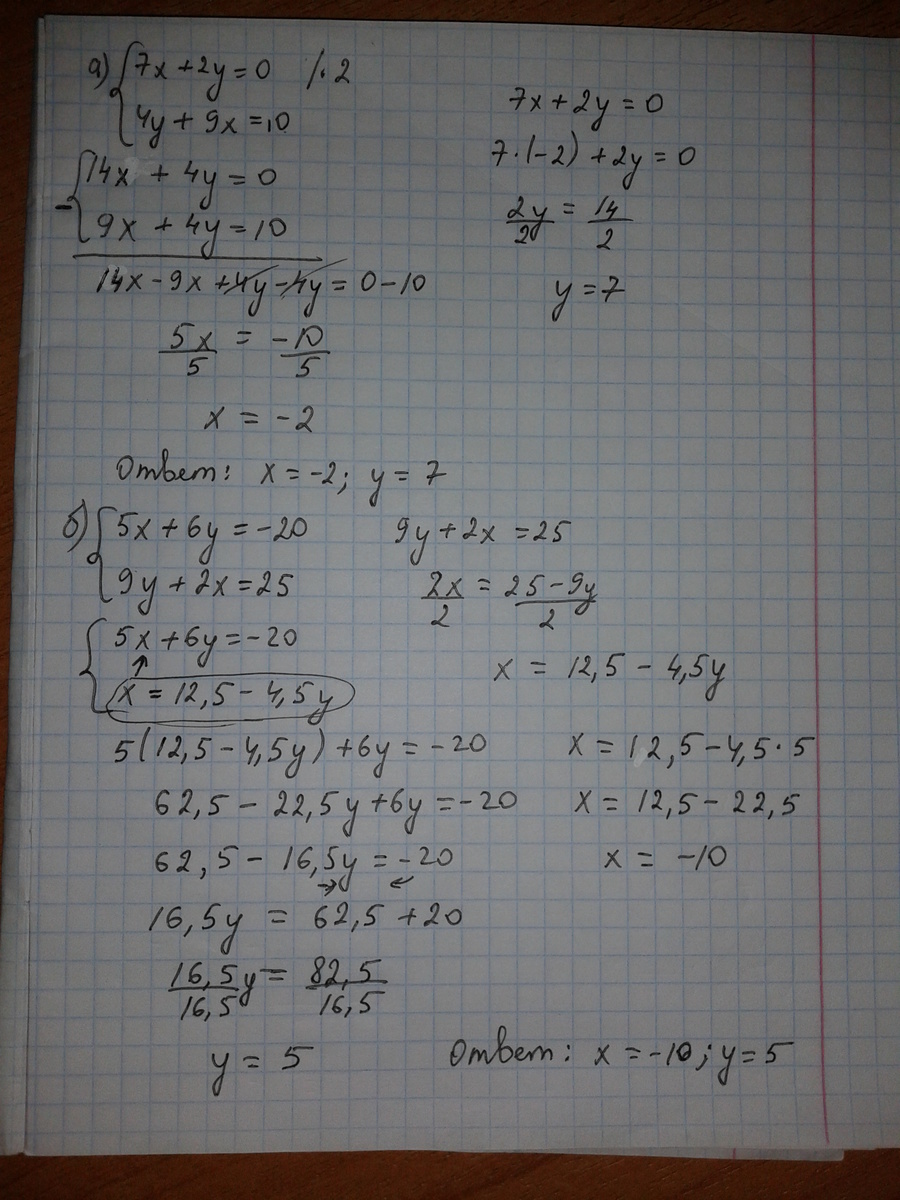 а) {7x + 2y = 0 /· 2
4y + 9x = 10
- {14x + 4y = 0
9x + 4y = 10
14x - 9x + 4y - 4y = 0 - 10
5x/5 = -10/5
x = -2
7x + 2y = 0
7·(-2) + 2y = 0
2y/2 = 14/2
y = 7
Ответ: x = -2; y = 7
б) {5x + 6y = -20
9y + 2x = 25
{5x + 6y = -20
x = 12,5 - 4,5y
5(12,5 - 4,5y) + 6y = -20
62,5 - 22,5y + 6y = -20
62,5 - 16,5y = -20
16,5y = 62,5 + 20
16,5/16,5 y = 82,5/16,5
y = 5
9y + 2x = 25
2x/2 = 25 - 9y/2
x = 12,5 - 4,5y
x = 12,5 - 4,5 · 5
x = 12,5 - 22,5
x = -10
Ответ: x = -10; y = 5